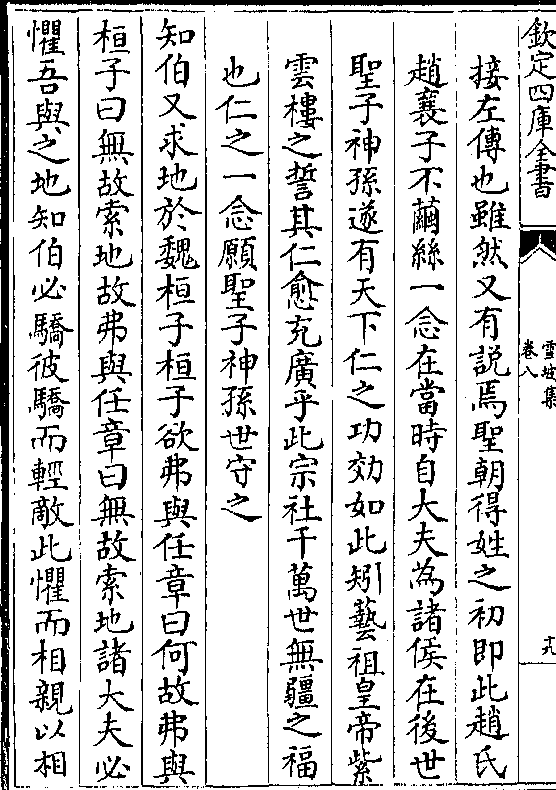 欽定四庫全書
雪坡集
卷八
十九
接左傳也雖然又有説焉聖朝得姓之初即此趙氏
趙襄子不繭絲一念在當時自大夫為諸侯在後世
聖子神孫遂有天下仁之功効如此矧藝祖皇帝紫
雲樓之誓其仁愈充廣乎此宗社千萬世無疆之福
也仁之一念願聖子神孫世守之
知伯又求地於魏桓子桓子欲弗與任章曰何故弗與
桓子曰無故索地故弗與任章曰無故索地諸大夫必
懼吾與之地知伯必驕彼驕而輕敵此懼而相親以相